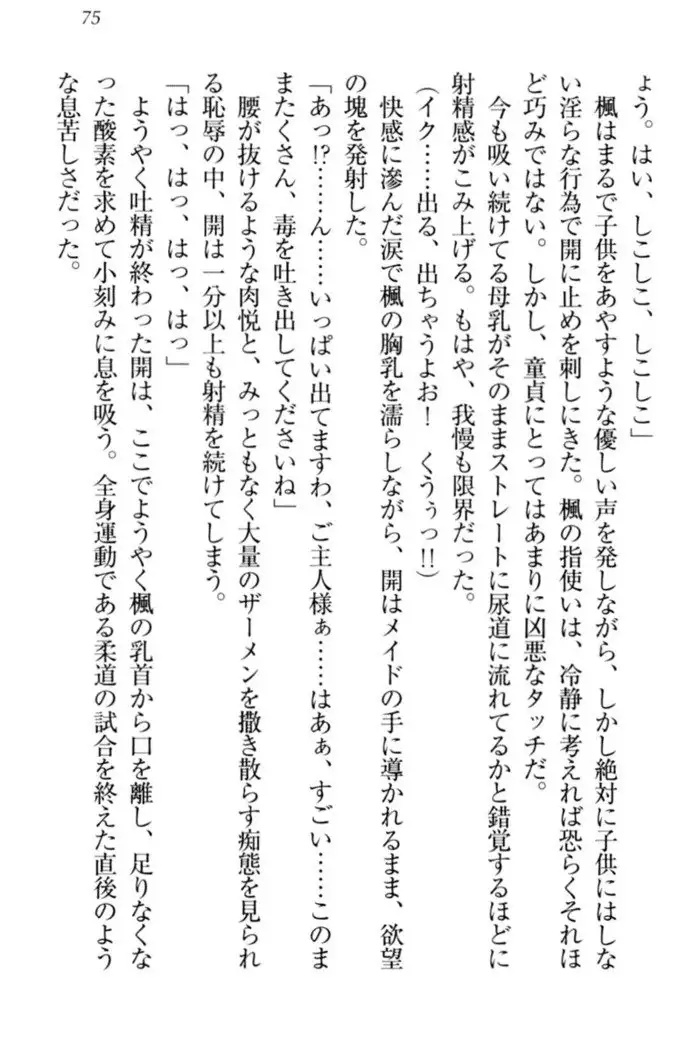 75
ょう。はい、しこしこ、しこしこ」
　楓はまるで子供をあやすような優しい声を発しながら、しかし絶対に子供にはしな
い淫らな行為で開に止めを刺しにきた。楓の指使いは、冷静に考えれば恐らくそれほ
ど巧みではない。しかし、童貞にとってはあまりに凶悪なタッチだ。
　今も吸い続けてる母乳がそのままストレートに尿道に流れてるかと錯覚するほどに
射精感がこみ上げる。もはや、我慢も限界だった。
（イク……出る、出ちゃうよお！　くうぅっ!!）
　快感に滲んだ涙で楓の胸乳を濡らしながら、開はメイドの手に導かれるまま、欲望
の塊を発射した。
「あっ!?……ん……いっぱい出てますわ、ご主人様ぁ……はあぁ、すごい……このま
またくさん、毒を吐き出してくださいね」
　腰が抜けるような肉悦と、みっともなく大量のザーメンを撒き散らす痴態を見られ
る恥辱の中、開は一分以上も射精を続けてしまう。
「はっ、はっ、はっ、はっ」
　ようやく吐精が終わった開は、ここでようやく楓の乳首から口を離し、足りなくな
った酸素を求めて小刻みに息を吸う。全身運動である柔道の試合を終えた直後のよう
な息苦しさだった。